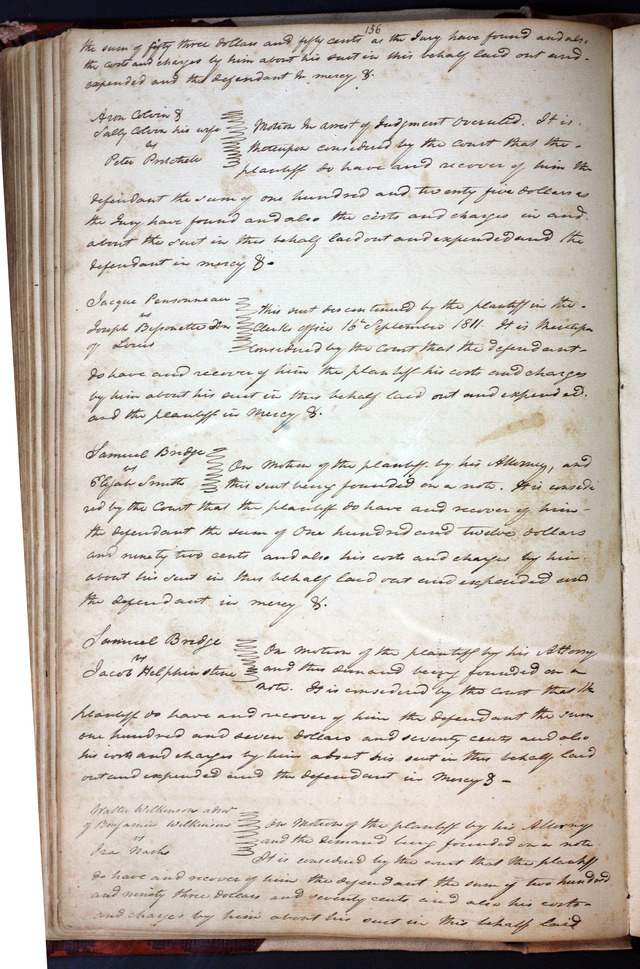 156
the sum of fifty three dollars and fifty cents as the Jury have found and als.
the costs and charges by him about his suit in this behalf laid out and
expended and the defendant in mercy &.
Aron Colvin &
Sally Colvin his wife
vs
Peter Pritchett
Motion in arrest of Judgment overuled. It is
thereupon considered by the Court that the
plaintiff do have and recover of him the
defendant the sum of one hundred and twenty five dollars as
the Jury have found and also the costs and charges in and
about the suit in this behalf laid out and expended and the
defendant in mercy &.
Jacque Pensonneau
vs
Joseph Bissonette Son
of Louis
this suit discontinued by the plaintiff in the
Clerks office 16th September 1811. It is thereupon
considered by the Court that the defendant
do have and recover of him the plaintiff his costs and charges
by him about his suit in this behalf laid out and expended.
and the plaintiff in Mercy &.
Samuel Bridge
vs
Elijah Smith
On Motion of the plaintiff by his Attorney, and
this suit being founded on a note. It is conside
red by the Court that the plaintiff do have and recover of him
the defendant the sum of One hundred and twelve dollars
and ninety two cents and also his costs and charges by him
about his suit in this behalf laid out and expended and
the defendant in mercy &.
Samuel Bridge
vs
Jacob Helphinstine
On Motion of the plaintiff by his Attorny
and this demand being founded on a
note. It is considered by the Court that the
plaintiff do have and recover of him the defendant the sum
one hundred and seven dollars and seventy cents and also
his costs and charges by him about his suit in this behalf laid
out and expended and the defendant in Mercy &
Walter Wilkinson admr
of Benjamin Wilkinson
vs
Ira Nash
On Motion of the plaintiff by his Attorney
and the demand being founded on a note
It is considered by the court that the plaintiff
do have and recover of him the defendant the sum of two hundred
and ninety three dollars and seventy cents and also his costs
and charges by him about his suit in this behalf laid